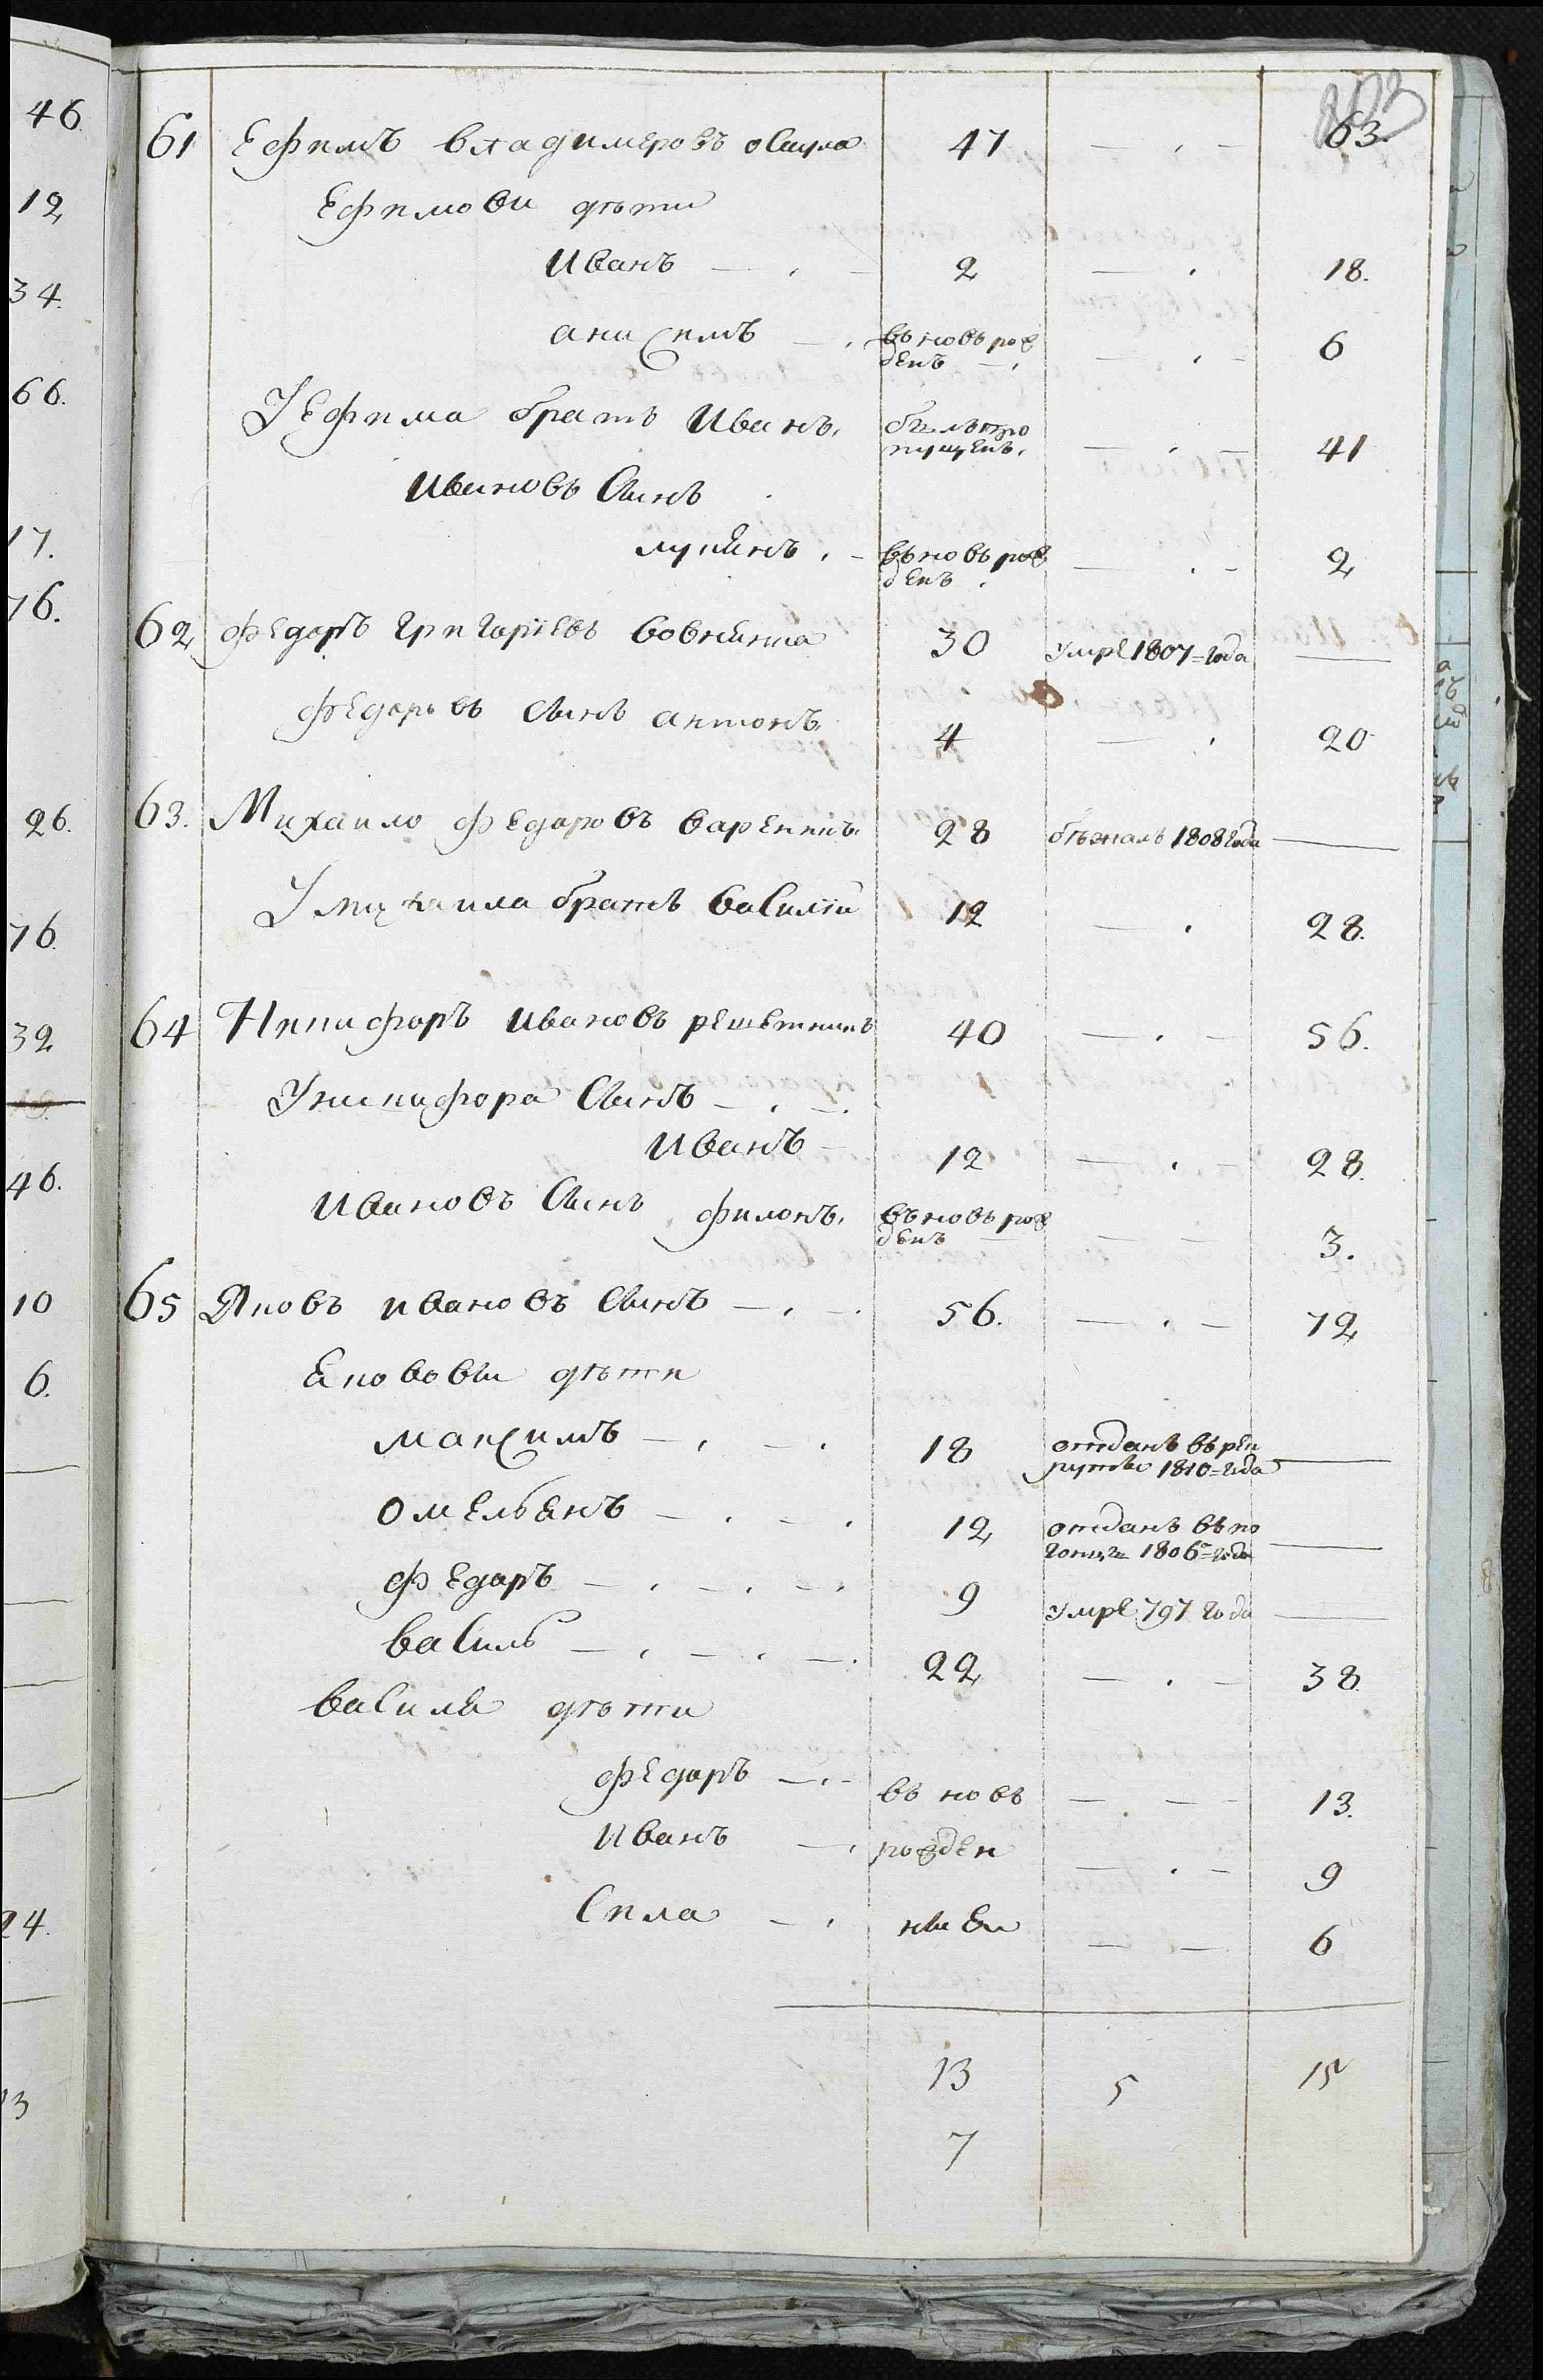 46.
12
34.
66.
17.
76.
26.
76
32
46.
10
6.
24.
13
61 Ефимъ владимеровъ 47 63.
Ефимови дѣти
Иванъ 2 18.
анисимъ вьновь рож
денъ 6
У Ефима братъ Иванъ билъ про
пущенъ 41
Ивановъ Синъ
лукіянъ вьновь рож
денъ 2
62 федоръ Григорїевъ 30 умре 1807=года
федоровъ синъ антонъ 4 20
63. Михаило федоровъ 28 бѣжалъ 1808 года
У михаила братъ василїй 12 28.
64 Никифоръ Ивановъ решетникъ 40 56.
У никифора Синъ
Иванъ 12 28.
Ивановъ Синъ филонъ вьновь рож
денъ 3.
65 Яковъ ивановъ Синъ 56. 72
Яковови дѣти
максимъ 18 отданъ въ рек
рути 1810=года
омельянъ 12 отданъ въ по
гонци 1806=года
федоръ 9 умре 797 года
василь 22 38.
василя дѣти
федоръ вь новь 13.
Иванъ рожден 9
Сила ные 6
13 5 15
7